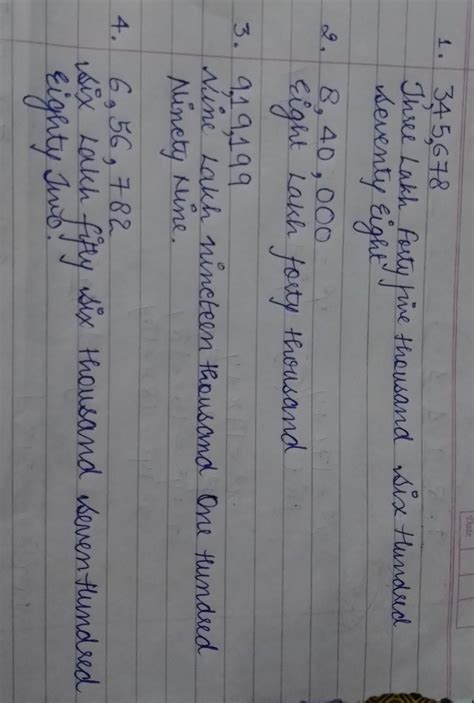 1. 3,45,678
Three Lakh forty five thousand six Hundred
seventy Eight
2. 8,40,000
Eight Lakh forty thousand
3. 9,19,199
Nine Lakh nineteen thousand One Hundred
Ninety Nine.
4. 6,56,782
Six Lakh fifty six thousand seven Hundred
Eighty Two.